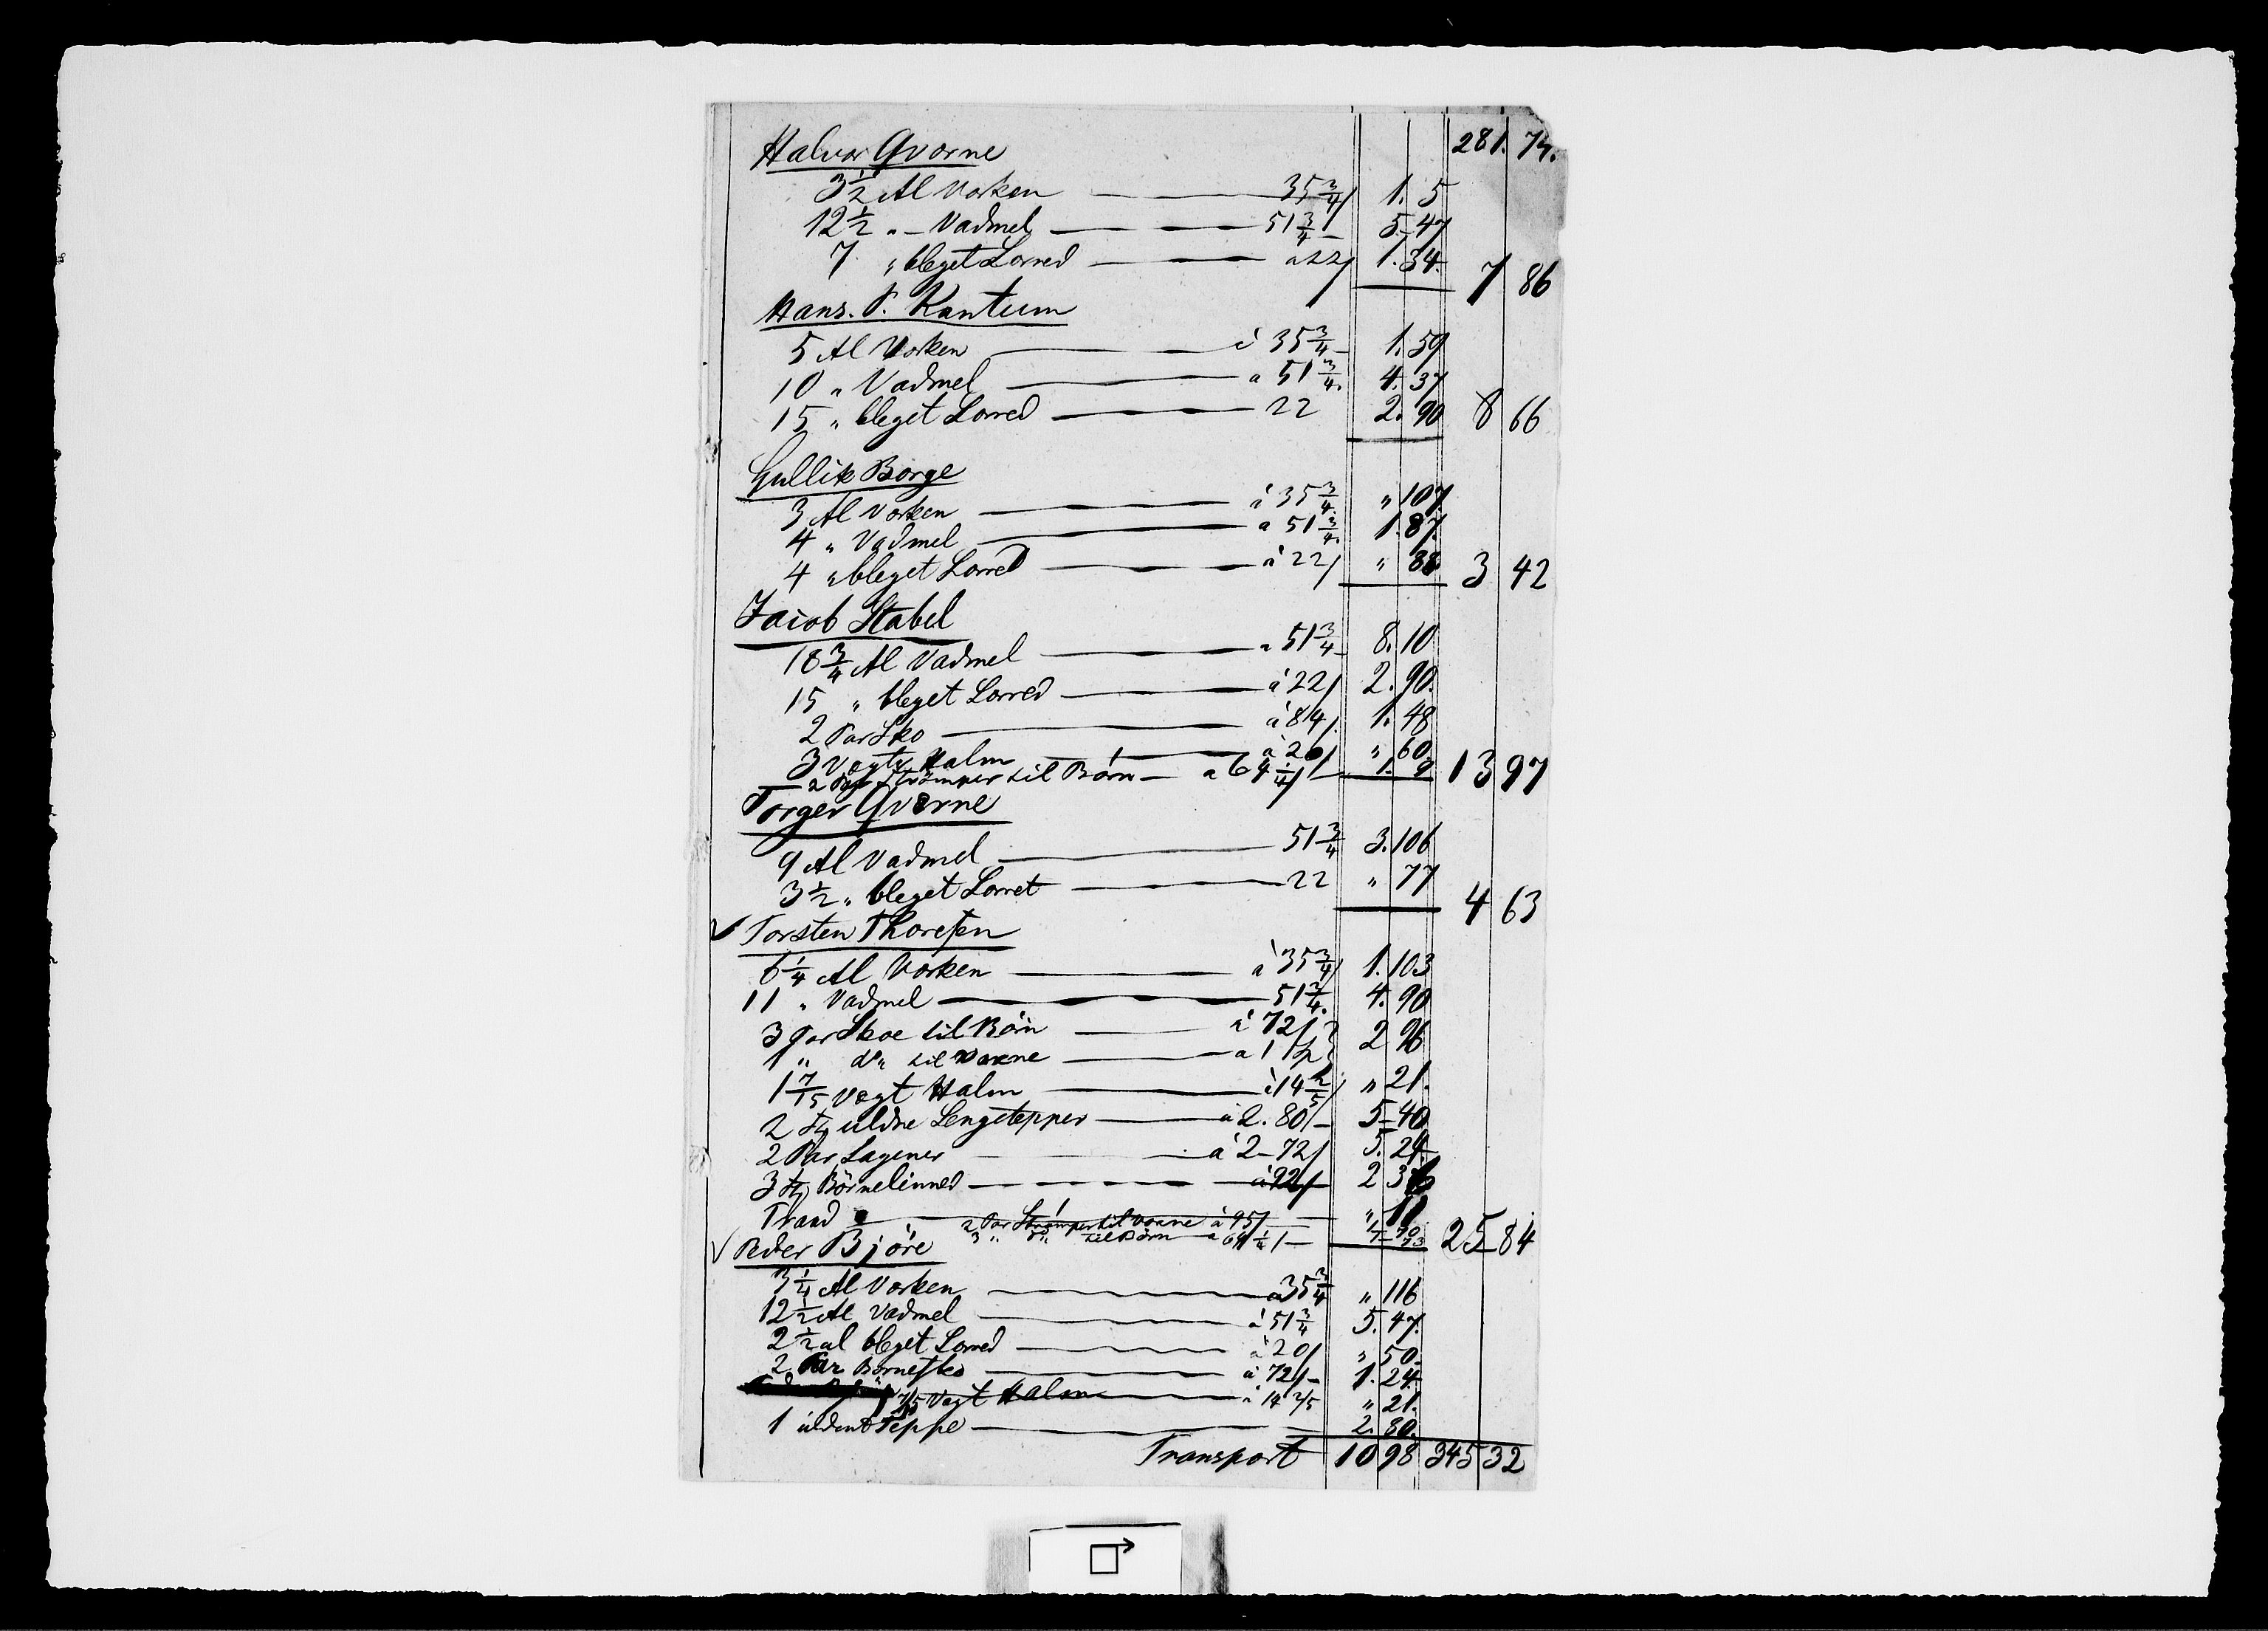 281. 74.
Halvor Qvorne
3 1/2 Al Vorken — 35 3/4 / 1. 5
12 1/2 " – Vadmel — 51 3/4 – 5 – 47
7 " bleget Lorred — a 22 / 1. 34. 7 86
Hans. P. Rantum
5 Al Vorken — à 35 3/4 – 1. 59
10 " Vadmel — a 51 3/4. 4. 37
15 " bleget Lorred — 22 2. 90 8 66
Gullik Borge
3 Al Vorken — à 35 3/4. " 107.
4 " Vadmel — a 51 3/4. 1. 87.
4 " bleget Lorred — à 22 / " 88 3 42
Jacob Stabel
18 3/4 Al Vadmel — a 51 3/4 – 8. 10
15 " bleget Lorred — à 22 / 2. 90.
2 Par Sko — à 84 /. 1. 48
3 Vegte Halm — à 20 / " 60
2 Par Strömper til Börn — a 64 1/4 / – 1. 9 13 97
Torger Qverne
9 Al Vadmel — 51 3/4 3. 106
3 1/2 " bleget Lorret — 22 " 77 4 63
Torsten Thoresen
6 1/4 Al Vorken — à 35 3/4 / 1. 103
11 " Vadmel — 51 3/4. 4. 90
3 par Skoe til Börn — à 72 / } 2 96
1 " do " til Voxne — a 1
1 7/15 Vegt Halm — à 14 2/5 / " 21.
2 St uldne Sengetepper — à 2. 80 / – 5 – 40
2 Par Lagener — à 2 – 72 / 5. 24
3 St Börnelinned — à 92 / 2 36
Traad — " 11
2 Par Strömper til Voxne à 95 / — 1 – 70
3 " do " til Börn — a 64 1/4 / – 1 – 73 25 84
Peder Björe
3 1/4 Al Vorken — a 35 3/4 " 116
12 1/2 Al Vadmel — à 51 3/4 5. 47.
2 1/2 al bleget Lorred — à 20 / " 50.
2 Par Bornesko — à 72 / – 1. 24.
1 7/15 Vegt Halm — à 14 2/5 " 21.
1 uldent Teppe — 2. 80.
Transport 10 98 345 32